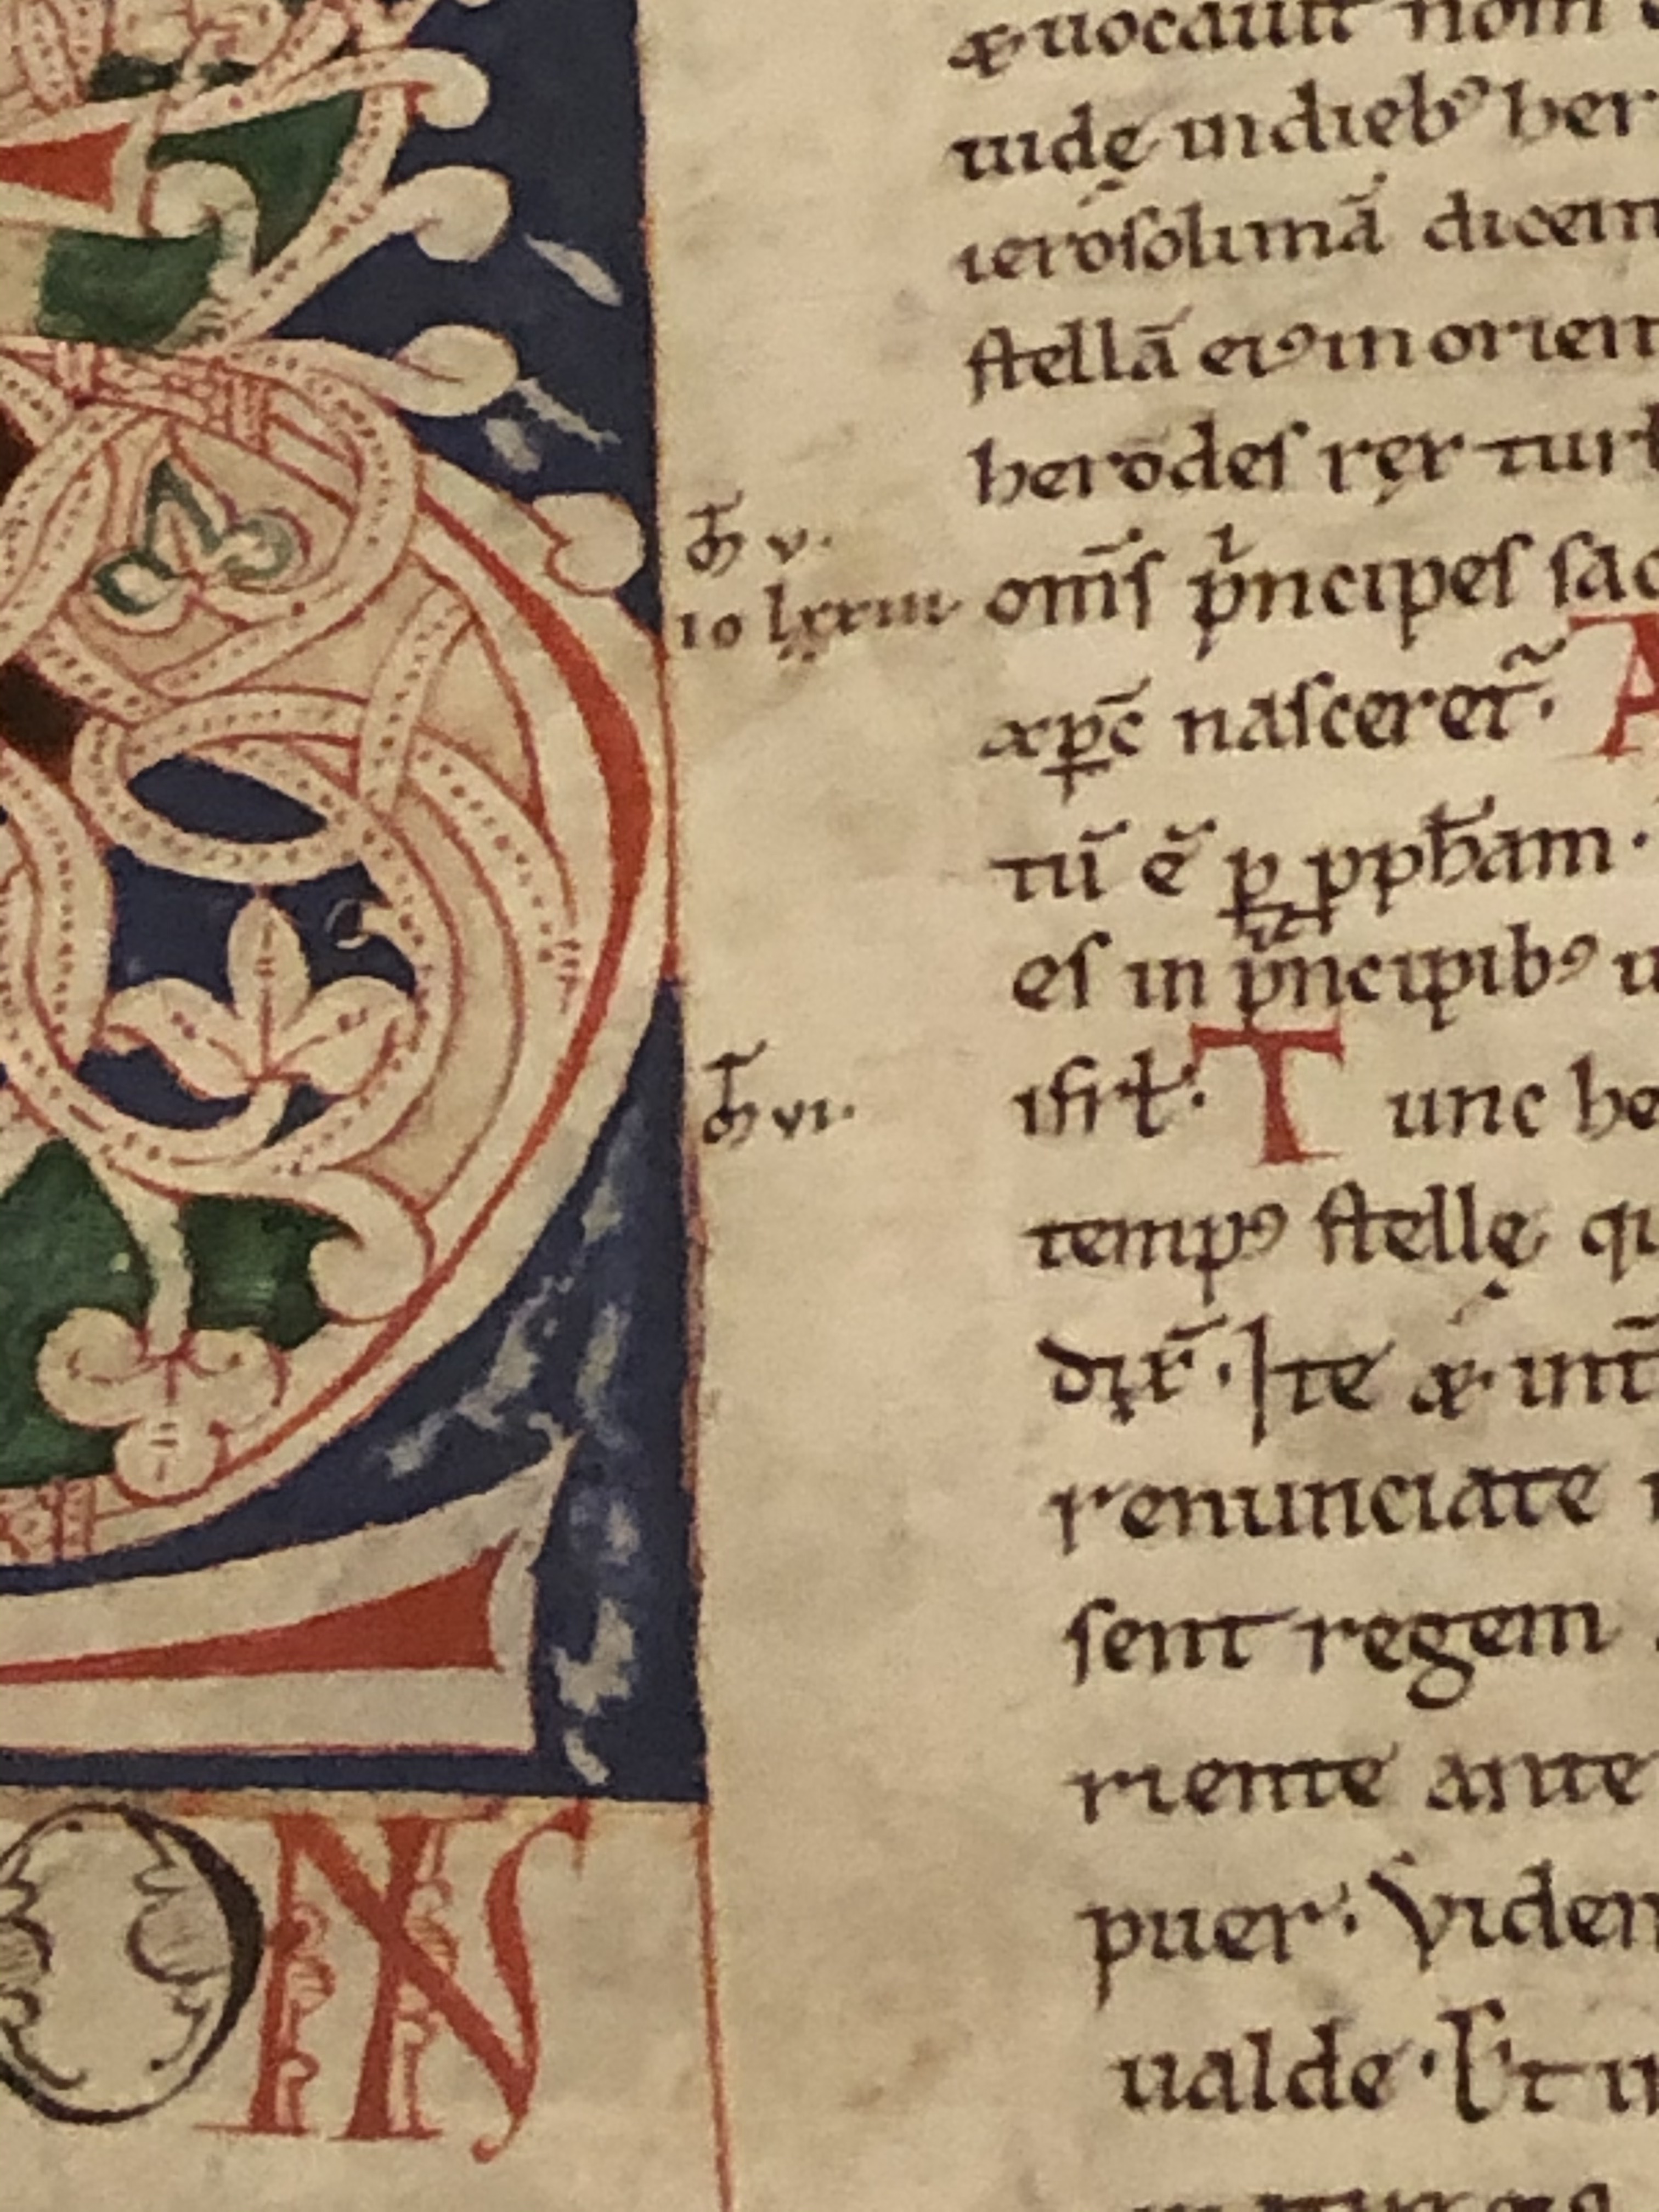 &uocauit nom
uidę indieb⁹ her
ierosolimā dicen
stellā ei⁹ in orien
herodes rex turb
m̄ v.
io lxxxiii omīs pⁱncipes sac
& xp̄c nasceret᷑. A
tū ē ꝑ ꝓph̄am ·
es in pⁱncipib⁹ u
isrł. Tunc he
m̄ vi.
temp⁹ stellę qu
dix̄. Ite & int̄
renunciate
sent regem
riente ante
puer. Viden
ualde. Et in
ON